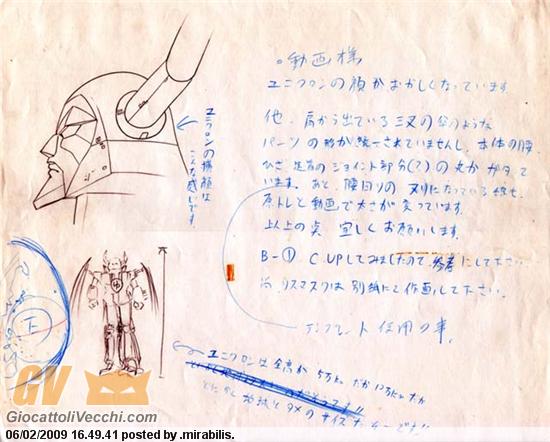 ○動画様
ユニクロンの顔がおかしくなっています
他、肩から出ている三叉の傘のような
パーツの形が統一されていませんし、本体の腰
ひざ、足首のジョイント部分(?)の丸がガタって
います。あと、腰回りの
原トレと動画で太さが変っています。
以上の点 宜しくお願いします。
B-① C.UPしてみましたので、参考にして下さい
尚、リスマスクは別紙にて作画して下さい。
使用の事.
ユニクロンの横顔は
こんな感じです。
下
ユニクロンは全高が
とにかく地球とタメのサイズだそーです!!
GV
GiocattoliVecchi.com
06/02/2009 16.49.41 posted by .mirabilis.